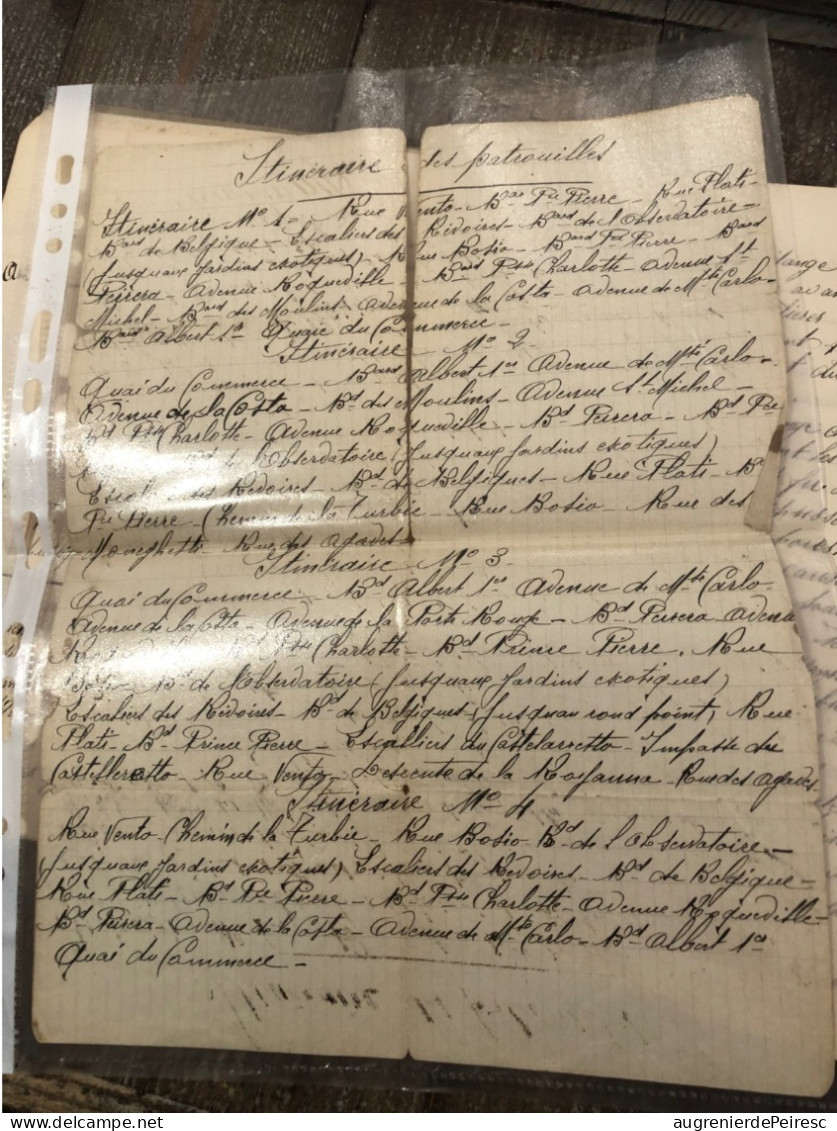 Itinéraire des patrouilles
Itinéraire No 1. Rue Vento - Bard Pce Pierre - Rue Plati -
Bard de Belgique - Escaliers des Révoires - Bard de l'Observatoire -
(Jusqu'aux Jardins exotiques) - Rue Bosio - Bard Pce Pierre - Bard
Pereira - Avenue Roqueville - Bard Psse Charlotte - Avenue St
Michel - Bard des Moulins - Avenue de la Costa - Avenue de Mte Carlo -
Bard Albert 1er Quaie du Commerce -
Itinéraire No 2.
Quai du Commerce - Bard Albert 1er Avenue de Mte Carlo -
Avenue de la Costa - Bd des Moulins - Avenue St Michel -
Bd Psse Charlotte - Avenue Roqueville - Bd Pereira - Bd Pce
de l'Observatoire (Jusqu'aux Jardins exotiques)
Escaliers des Révoires - Bd de Belgiques - Rue Plati - B
Pce Pierre - Chemin de la Turbie - Rue Bosio - Rue des
Moneghetti Rue des agaves -
Itinéraire No 3.
Quai du Commerce - Bd Albert 1er Avenue de Mte Carlo -
Avenue de la Costa - Avenue de la Porte Rouge - Bd Pereira Avenu
Psse Charlotte - Bd Prince Pierre. Rue
Bosio - Bd de l'Observatoire (Jusqu'aux Jardins exotiques)
Escaliers des Révoires - Bd de Belgiques (Jusqu'au rond point) Rue
Plati - Bd Prince Pierre - Escalliers du Castelarretto - Impasse du
Castelleretto - Rue Vento - Descente de la Rousanna - Rue des agaves
Itinéraire No 4
Rue Vento - Chemin de la Turbie - Rue Bosio Bd de l'Observatoire -
(Jusqu'aux Jardins exotiques) Escaliers des Révoires - Bd de Belgique -
Rue Plati - Bd Pce Pierre - Bd Psse Charlotte - Avenue Roqueville -
Bd Pereira - Avenue de la Costa - Avenue de Mte Carlo - Bd Albert 1er
Quai du Commerce -
augrenierdePeiresc